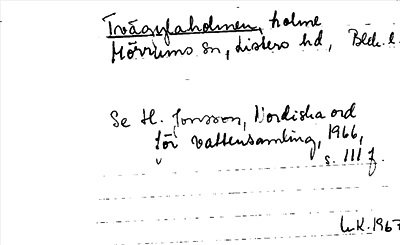 Trågylaholmen, holme
Mörrums sn, Listers hd, Blek. l.
Se H. Jonsson, Nordiska ord
för vattensamling, 1966,
s. 111 f.
1967